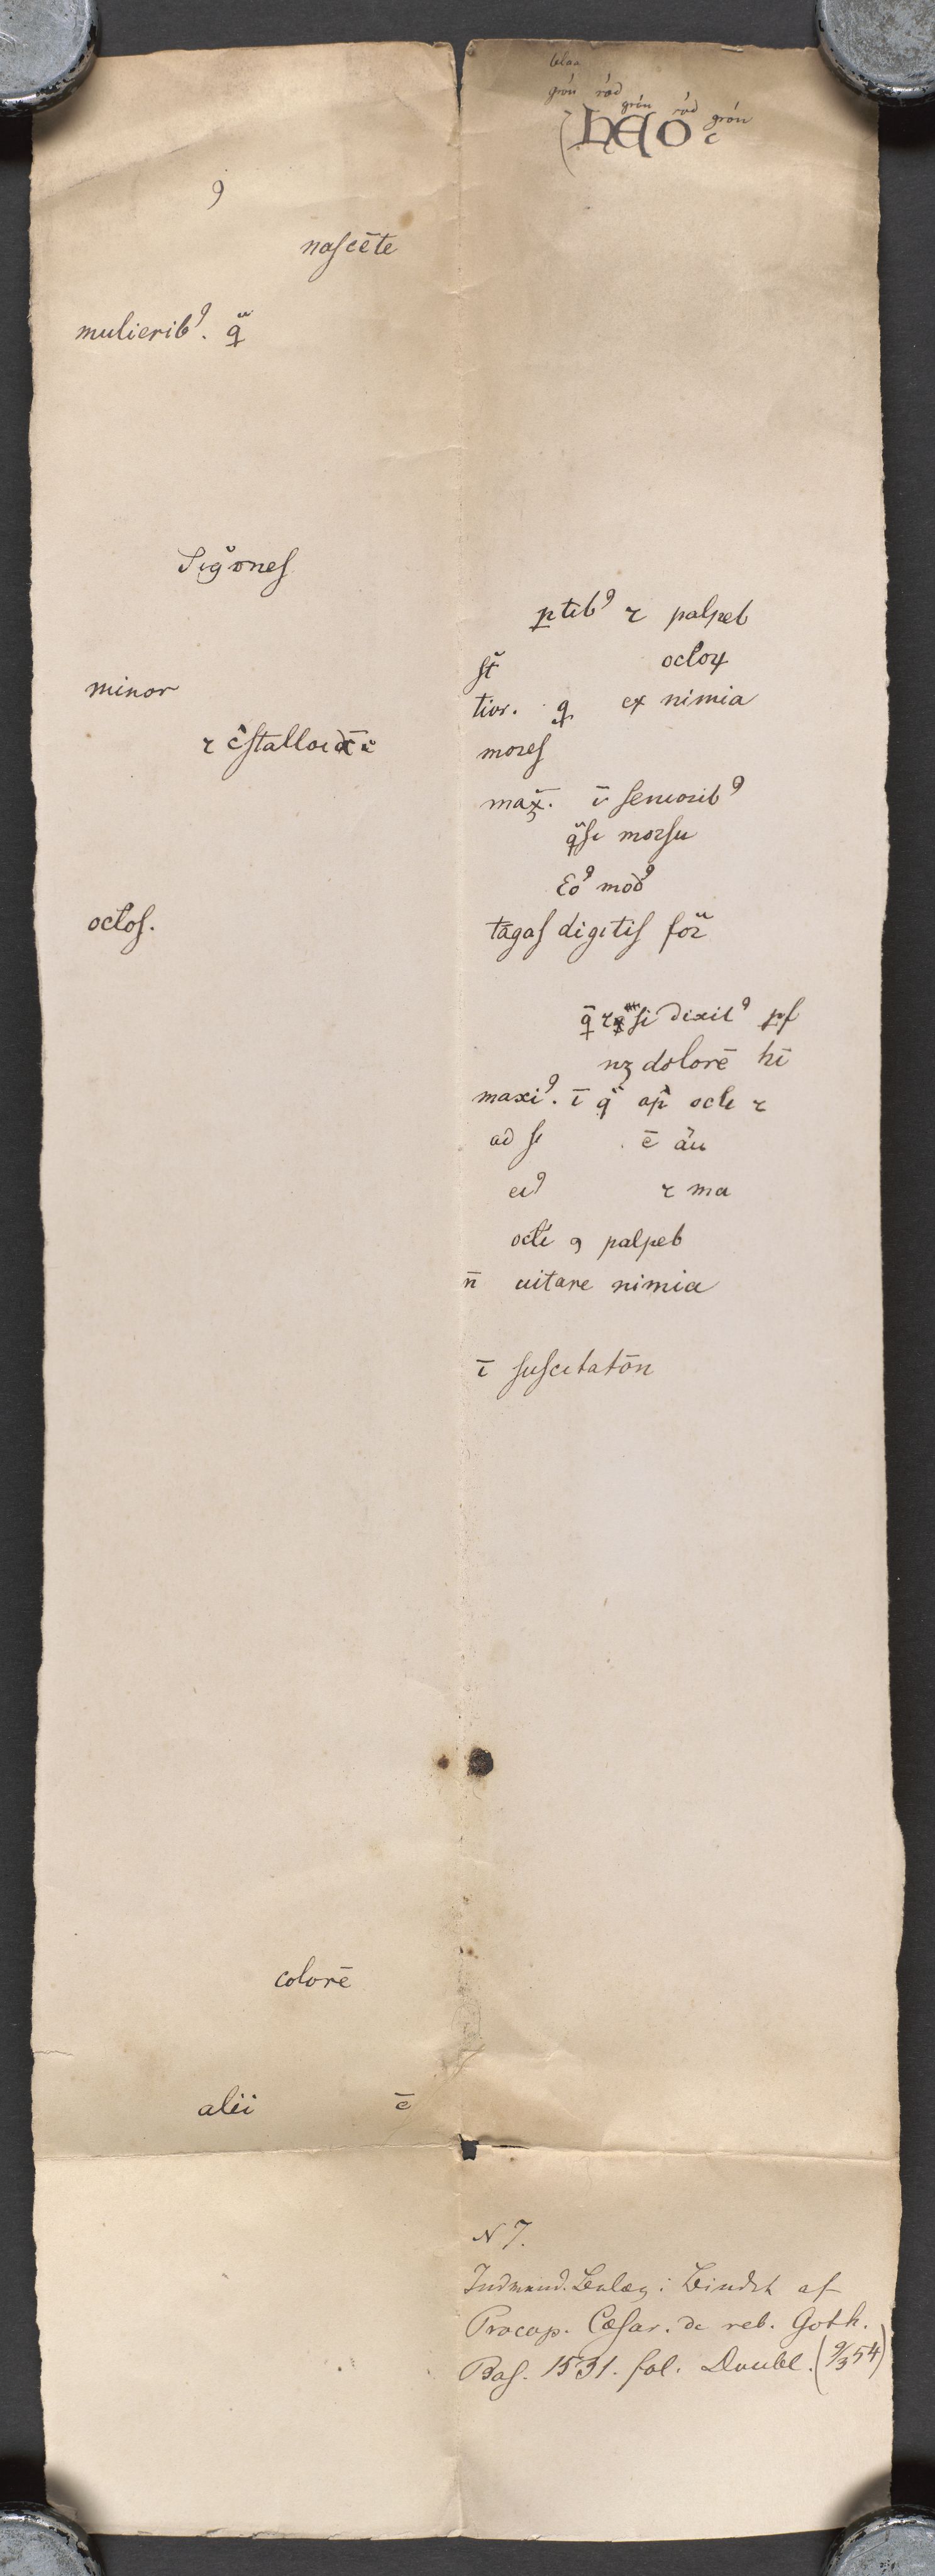 blaa
grön röd
grön röd grön
(HEO c
ꝯ
nascēte
mulierib⁹. qͣ
Sigones
minor
⁊ c̄stalloid
octos.
colorē
alii ē
ꝑtib⁹ ⁊ palpeb
st̄ octoꝝ
tior. ꝙ ex nimia
mores
max̄. ī seniorib⁹
qͣsi morsu
Eo⁹ mod⁹
tāgas digitis forͣ
si dixit⁹
nꝫ dolorē hī
maxi⁹. ī qͣ ap̄ octi ⁊
ad se ē au
ei⁹ ⁊ ma
octi ꝯ palpeb
n̄ uitare nimia
ī suscitatōn
N 7.
Indvend. Belæg i Bindet af
Procop. Cæsar. de reb. Goth.
Bas. 1531. fol. Doubl. (9/3 54)